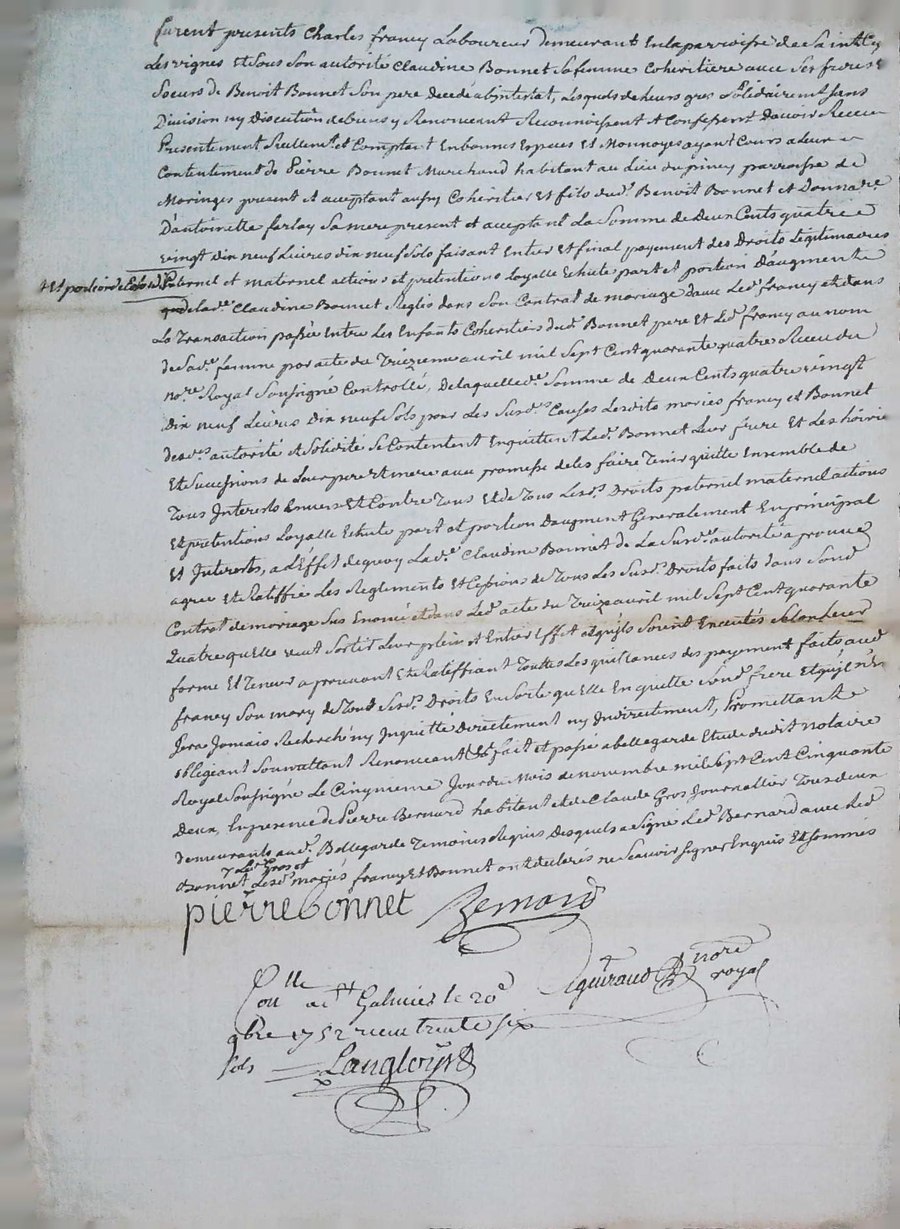 furent presents Charles francy Laboureur demeurant En la parroisse de Saint Cyr
Les vignes Et Sous Son autorité Claudine Bonnet Sa femme Coheritiere avec Ses freres Et
Soeurs de Benoit Bonnet Son pere decedé abintestat, Lesquels de leurs grés Solidairemt Sans
Division ny Discution de biens y Renonceant Reconnoissent Et Confessent Davoir Receu
Presentement Reellemt et Comptant En bonnes Especes Et Monnoyes ayant Cours a leur
Contentement de Pierre Bonnet Marchand habitant au Lieu du piney parroisse de
Maringes present et acceptant aussy Coheritier Et fils dudt Benoit Bonnet et Donnaire
D'antoinette ferlay Sa mere present et acceptant La Somme de Deux Cents quatre
vingt dix neuf Livres dix neuf Sols faisant Entier Et final payement des Droits Legitimaires
+ Et portion de Paternel et maternel actions et pretentions Loyalle Echute part et portion D'augment
de lade Claudine Bonnet Reglés dans Son Contrat de mariage d'avec Led. francy et dans
La Transaction passée Entre Les Enfants Coheritiers dudt Bonnet pere Et Led. francy au nom
de Sade femme par acte du Treizieme avril mil Sept Cent quarante quatre Receu du
nore Royal Soussigné Controllé, De laquelle de Somme de Deux Cents quatre vingt
dix neuf Livres Dix neuf Sols pour Les Susds Causes Lesdits mariés francy et Bonnet
desds autorité et Solidité Se Contentent En quittent Led. Bonnet Leur frere Et Les hoirie
Et Successions de Leur pere et mere avec promesse de les faire Tenir quitte Ensemble de
Tous Interests Envers Et Contre Tous Et de Tous Lesds Droits paternel maternel actions
Et pretentions Loyalle Echute part et portion Daugment Generalement En principal
Et Interests, a L'Effet de quoy Lade Claudine Bonnet de La Susde autorité aprouve
agree Et Ratiffie Les Reglements Et Cessions de Tous Les Susds Droits faits dans Sond
Contrat de mariage Sus Enoncé et dans Led. acte du Treize avril mil Sept Cent quarante
Quatre qu'elle veut Sortir Leur plein et Entier Effet et qu'ils Soient Executés Selon Leur
forme Et Teneur aprouvant Et Ratiffiant Toutes Les quittances des payement faits aud
francy Son mary de Tous Susds Droits En Sorte qu'elle En quitte Sond frere Et qu'il n'En
Sera Jamais Recherché ny Inquietté Directement ny Indirectement, Promettant
obligeant Soumettant Renonceant fait et passé a bellegarde Etude dudit notaire
Royal Soussigné Le Cinquieme Jour du Mois de novembre mil Sept Cent Cinquante
Deux, En presence de Pierre Bernard habitant et de Claude Gros Journallier Tous deux
demeurants aud. Bellegarde Temoins Requis Desquels a Signé Led. Bernard avec Led.
Led. Gros et
Bonnet Lesds mariés francy Et Bonnet ont declarés ne Savoir Signer Enquis Et Sommés
pierre bonnet Bernard
guiraud nore
royal
Conlle a St Galmier le 20e
9bre 1752 receu trente six
sols Langloys